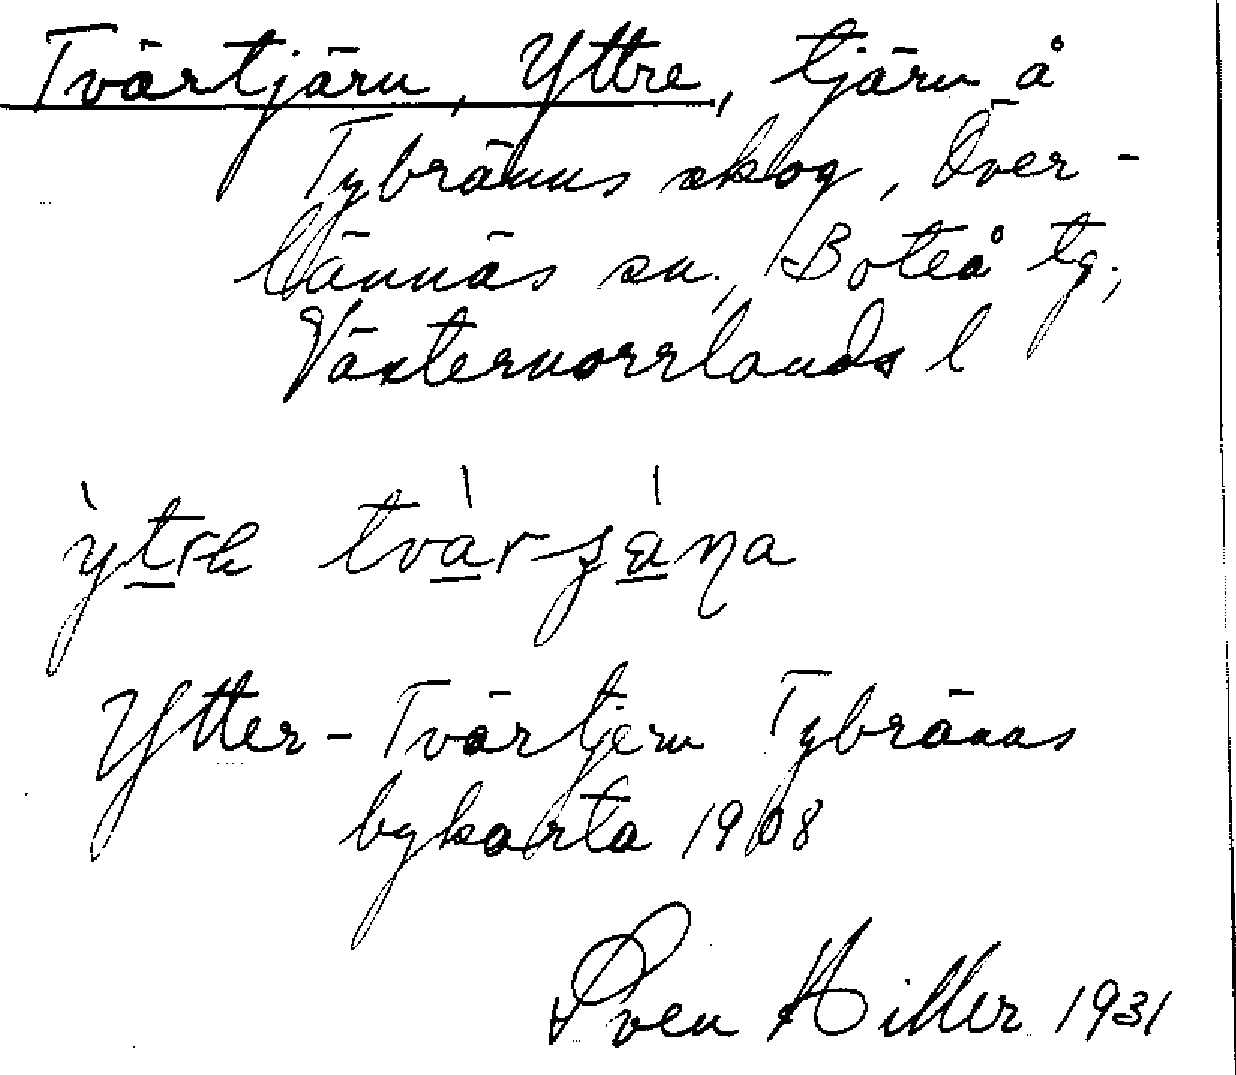 Tvärtjärn, Yttre, tjärn å
Tybränns skog, Över-
lännäs sn, Boteå tg,
Västernorrlands l
tvàr
Ytter-Tvärtjern Tybränns
bykarta 1908
Sven Hiller 1931